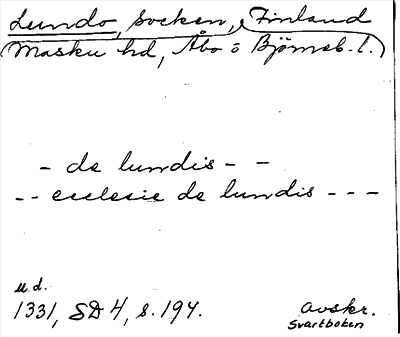 Lundo, socken, Finland
(Masku hd, Åbo o Björneb. l.)
- de lundis - -
-- ecclesie de lundis - - -
u.d.
1331, SD 4, s. 194.
avskr.
Svartboken